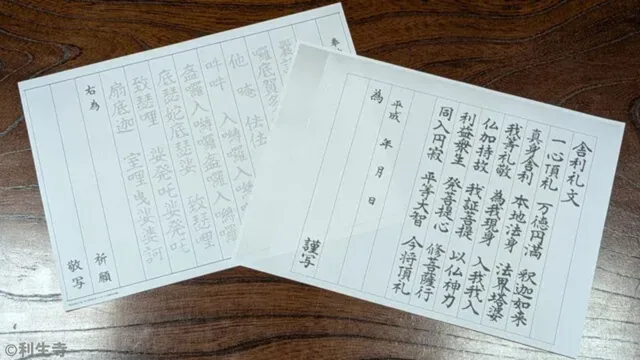 舎利礼文
一心頂礼 万徳円満 釈迦如来
真身舎利 本地法身 法界塔婆
我等礼敬 為我現身 入我我入
仏加持故 我証菩提 以仏神力
利益衆生 発菩提心 修菩薩行
同入円寂 平等大智 今将頂礼
平成 年 月 日
為
謹写
奉
囉底賀多
他 唵 佉佉
吽吽 入嚩囉入嚩
囉入嚩囉 囉入嚩囉
底瑟 底瑟 致瑟哩
致瑟哩 娑発吒娑発吒
扇底迦 室哩曳娑婆訶
右為 祈願
敬写
©利生寺